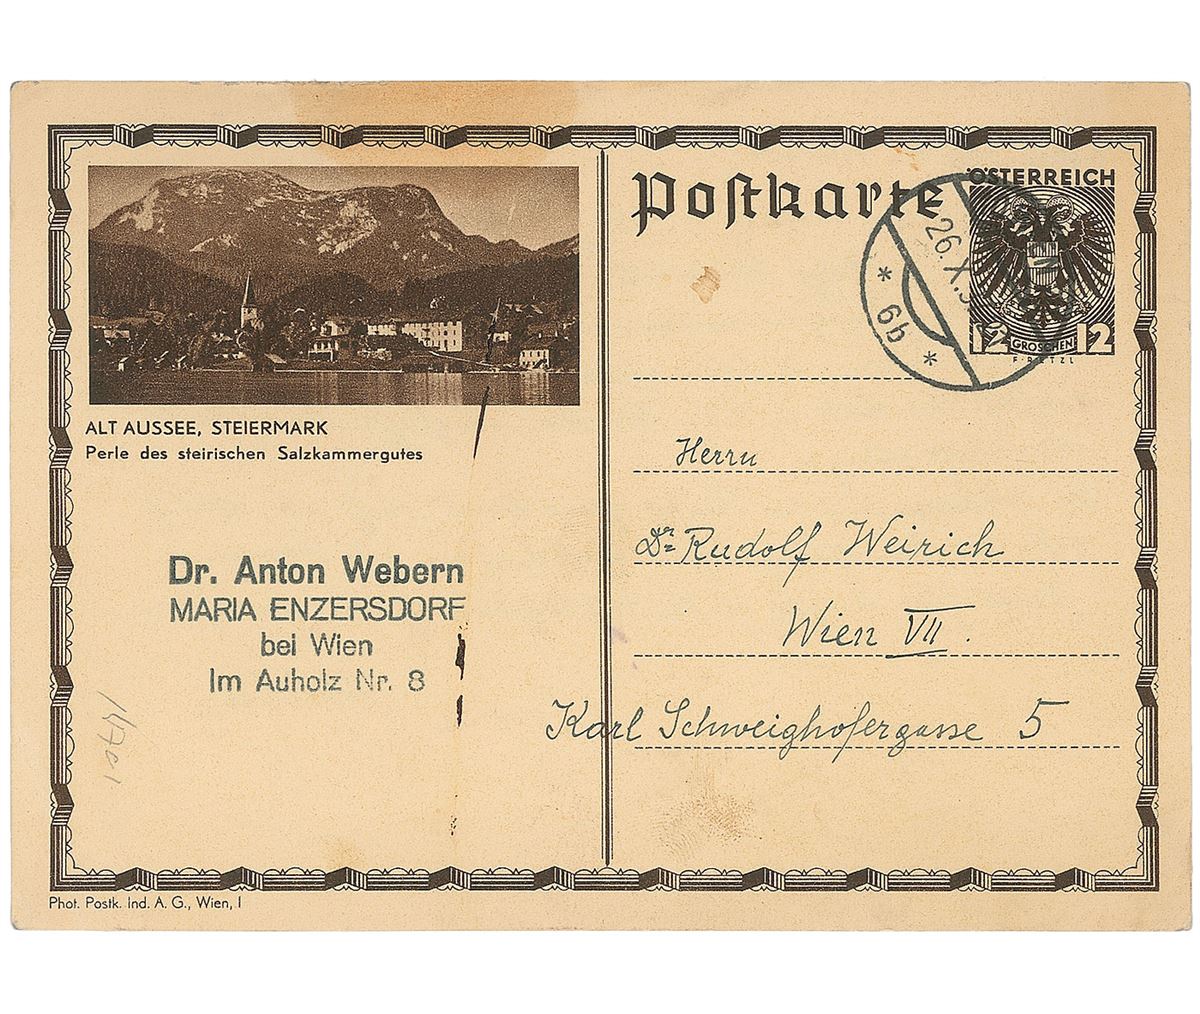 Postkarte
ÖSTERREICH
26.X.3
* 6b *
12 GROSCHEN 12
F·RETZL
ALT AUSSEE, STEIERMARK
Perle des steirischen Salzkammergutes
Dr. Anton Webern
MARIA ENZERSDORF
bei Wien
Im Auholz Nr. 8
Herrn
Dr Rudolf Weirich
Wien VII.
Karl Schweighofergasse 5
Phot. Postk. Ind. A. G., Wien, I